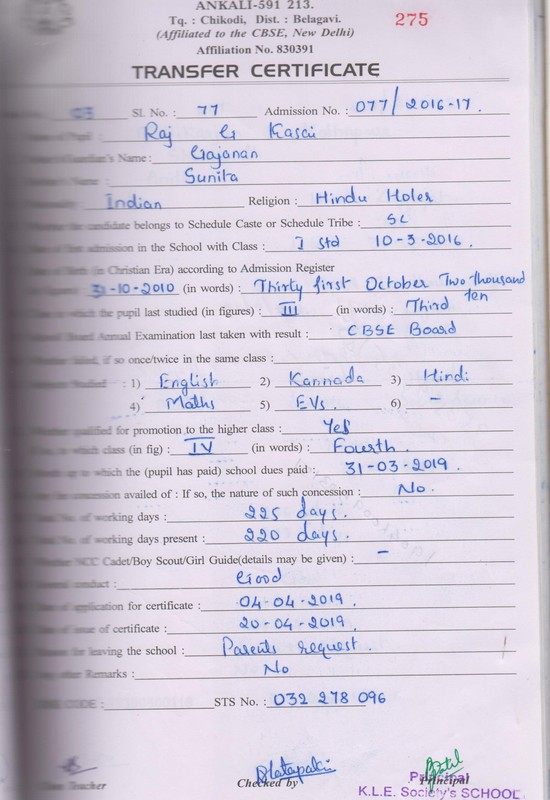 ANKALI-591 213.
Tq. : Chikodi, Dist. : Belagavi.
275
(Affiliated to the CBSE, New Delhi)
Affiliation No. 830391
TRANSFER CERTIFICATE
03 Sl. No. : 77 Admission No. : 077/2016-17.
of Pupil : Raj G Kasai
Guardian's Name : Gajanan
Name : Sunita
Indian Religion : Hindu Holer
the candidate belongs to Schedule Caste or Schedule Tribe : SC
first admission in the School with Class : I std 10-3-2016.
of Birth (in Christian Era) according to Admission Register
31-10-2010 (in words) : Thirty first October Two thousand ten
in which the pupil last studied (in figures) : III (in words) : Third
Board Annual Examination last taken with result : CBSE Board
failed, if so once/twice in the same class :
Studied : 1) English 2) Kannada 3) Hindi
4) Maths 5) EVs. 6) -
qualified for promotion to the higher class : Yes
in which class (in fig) : IV (in words) : Fourth.
up to which the (pupil has paid) school dues paid : 31-03-2019.
concession availed of : If so, the nature of such concession : No.
No. of working days : 225 days.
No. of working days present : 220 days.
NCC Cadet/Boy Scout/Girl Guide(details may be given) : -
conduct : Good
of application for certificate : 04-04-2019.
of issue of certificate : 20-04-2019.
for leaving the school : Parents request.
other Remarks : No
CODE : STS No. : 032 278 096
Teacher Checked by Principal
Principal
K.L.E. Society's SCHOOL